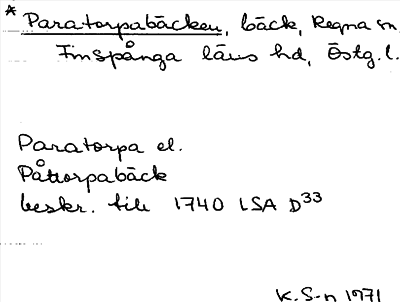 * Paratorpabäcken, bäck, Regna sn,
Finspånga läns hd, Östg. l.
Paratorpa el.
Påttorpabäck
beskr. till 1740 LSA D33
K. S-n 1971